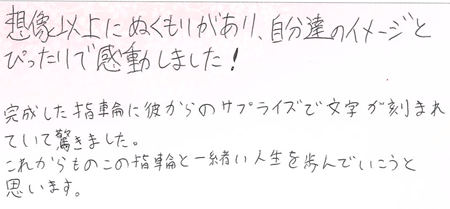 想像以上にぬくもりがあり、自分達のイメージと
ぴったりで感動しました!
完成した指輪に彼からのサプライズで文字が刻まれ
ていて驚きました。
これからものこの指輪と一緒い人生を歩んでいこうと
思います。